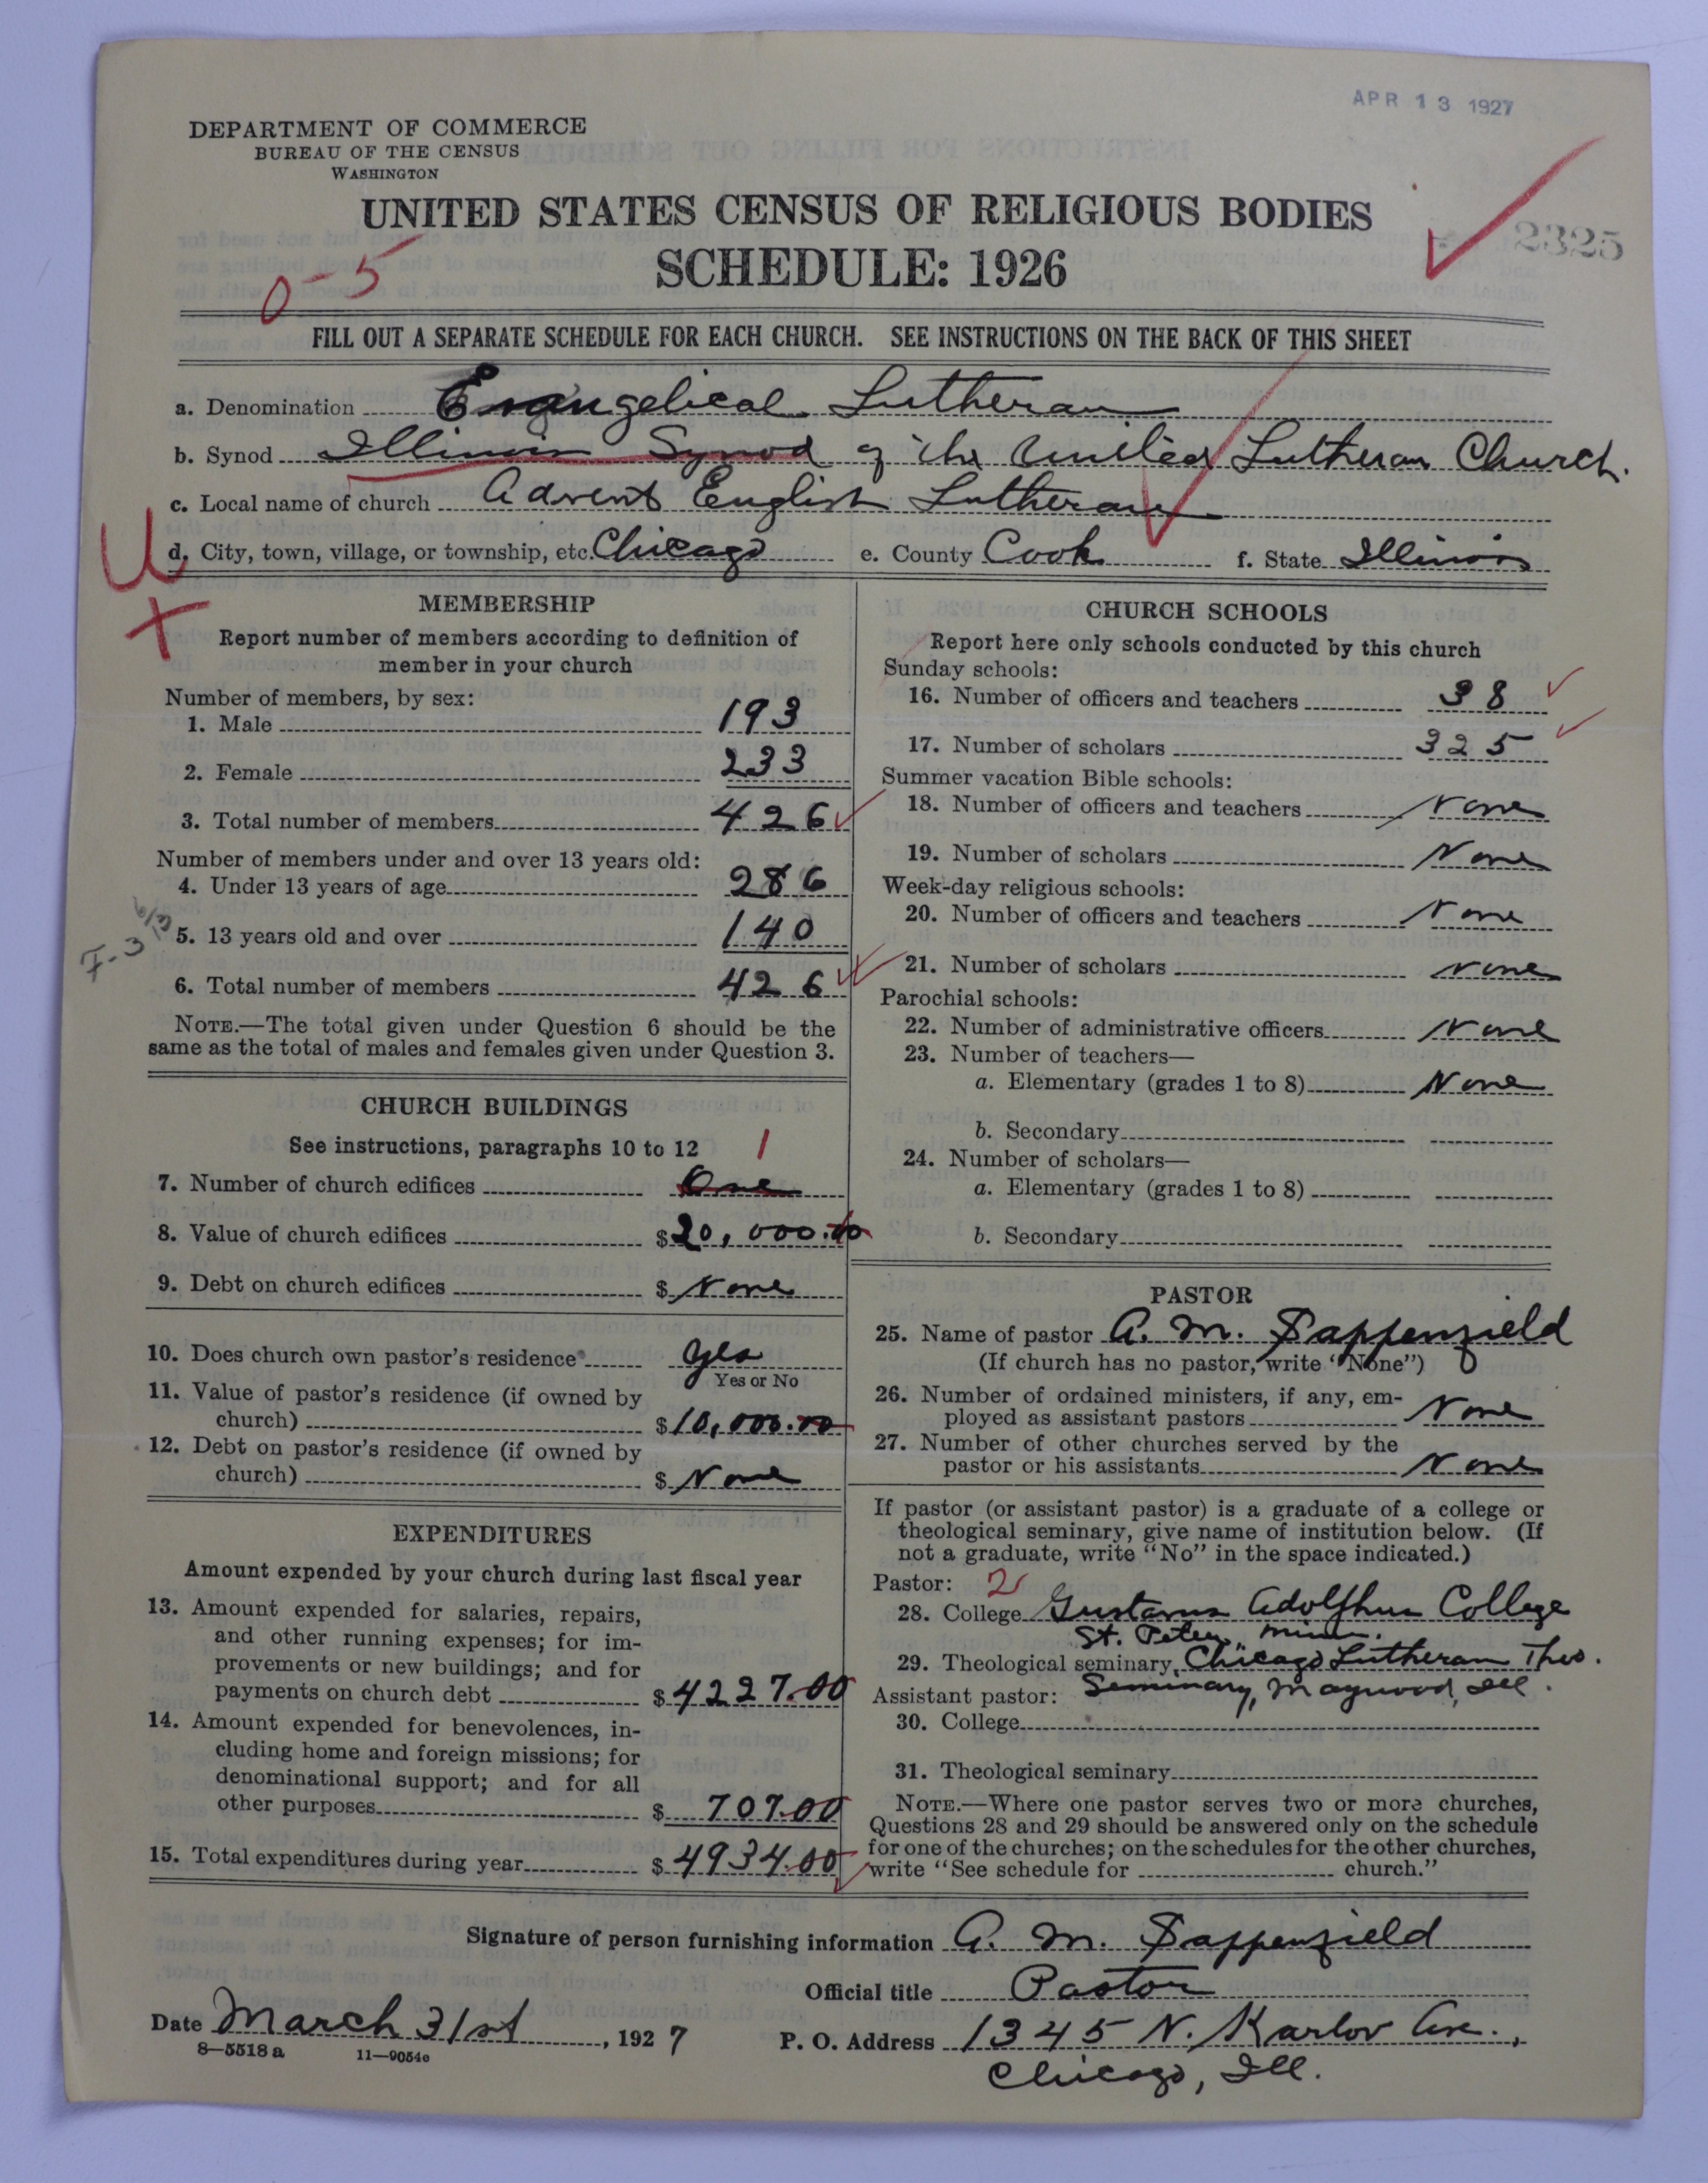 APR 13 1927
DEPARTMENT OF COMMERCE
BUREAU OF THE CENSUS
WASHINGTON
UNITED STATES CENSUS OF RELIGIOUS BODIES
SCHEDULE: 1926
2325
0-5
FILL OUT A SEPARATE SCHEDULE FOR EACH CHURCH. SEE INSTRUCTIONS ON THE BACK OF THIS SHEET
a. Denomination Evangelical Lutheran
b. Synod Illinois Synod of the United Lutheran Church.
c. Local name of church Advent English Lutheran
U
d. City, town, village, or township, etc. Chicago e. County Cook f. State Illinois
MEMBERSHIP
Report number of members according to definition of
member in your church
Number of members, by sex:
1. Male 193
2. Female 233
3. Total number of members 426
Number of members under and over 13 years old:
4. Under 13 years of age 286
5. 13 years old and over 140
F-3 6/13
6. Total number of members 426
NOTE.—The total given under Question 6 should be the
same as the total of males and females given under Question 3.
CHURCH BUILDINGS
See instructions, paragraphs 10 to 12
1
7. Number of church edifices One
8. Value of church edifices $20,000.00
9. Debt on church edifices $ None
10. Does church own pastor's residence? Yes
Yes or No
11. Value of pastor's residence (if owned by
church) $10,000.00
12. Debt on pastor's residence (if owned by
church) $ None
EXPENDITURES
Amount expended by your church during last fiscal year
13. Amount expended for salaries, repairs,
and other running expenses; for im-
provements or new buildings; and for
payments on church debt $4227.00
14. Amount expended for benevolences, in-
cluding home and foreign missions; for
denominational support; and for all
other purposes $ 707.00
15. Total expenditures during year $4934.00
CHURCH SCHOOLS
Report here only schools conducted by this church
Sunday schools:
16. Number of officers and teachers 38
17. Number of scholars 325
Summer vacation Bible schools:
18. Number of officers and teachers None
19. Number of scholars None
Week-day religious schools:
20. Number of officers and teachers None
21. Number of scholars None
Parochial schools:
22. Number of administrative officers None
23. Number of teachers—
a. Elementary (grades 1 to 8) None
b. Secondary
24. Number of scholars—
a. Elementary (grades 1 to 8)
b. Secondary
PASTOR
25. Name of pastor A. M. Sappenfield
(If church has no pastor, write "None")
26. Number of ordained ministers, if any, em-
ployed as assistant pastors None
27. Number of other churches served by the
pastor or his assistants None
If pastor (or assistant pastor) is a graduate of a college or
theological seminary, give name of institution below. (If
not a graduate, write "No" in the space indicated.)
Pastor: 2
28. College Gustavus Adolphus College
St. Peter, Minn.
29. Theological seminary Chicago Lutheran Theo.
Assistant pastor: Seminary, Maywood, Ill.
30. College
31. Theological seminary
NOTE.—Where one pastor serves two or more churches,
Questions 28 and 29 should be answered only on the schedule
for one of the churches; on the schedules for the other churches,
write "See schedule for church."
Signature of person furnishing information A. M. Sappenfield
Official title Pastor
Date March 31st, 1927 P. O. Address 1345 N. Karlov Ave.,
8—5518a 11—9054c
Chicago, Ill.